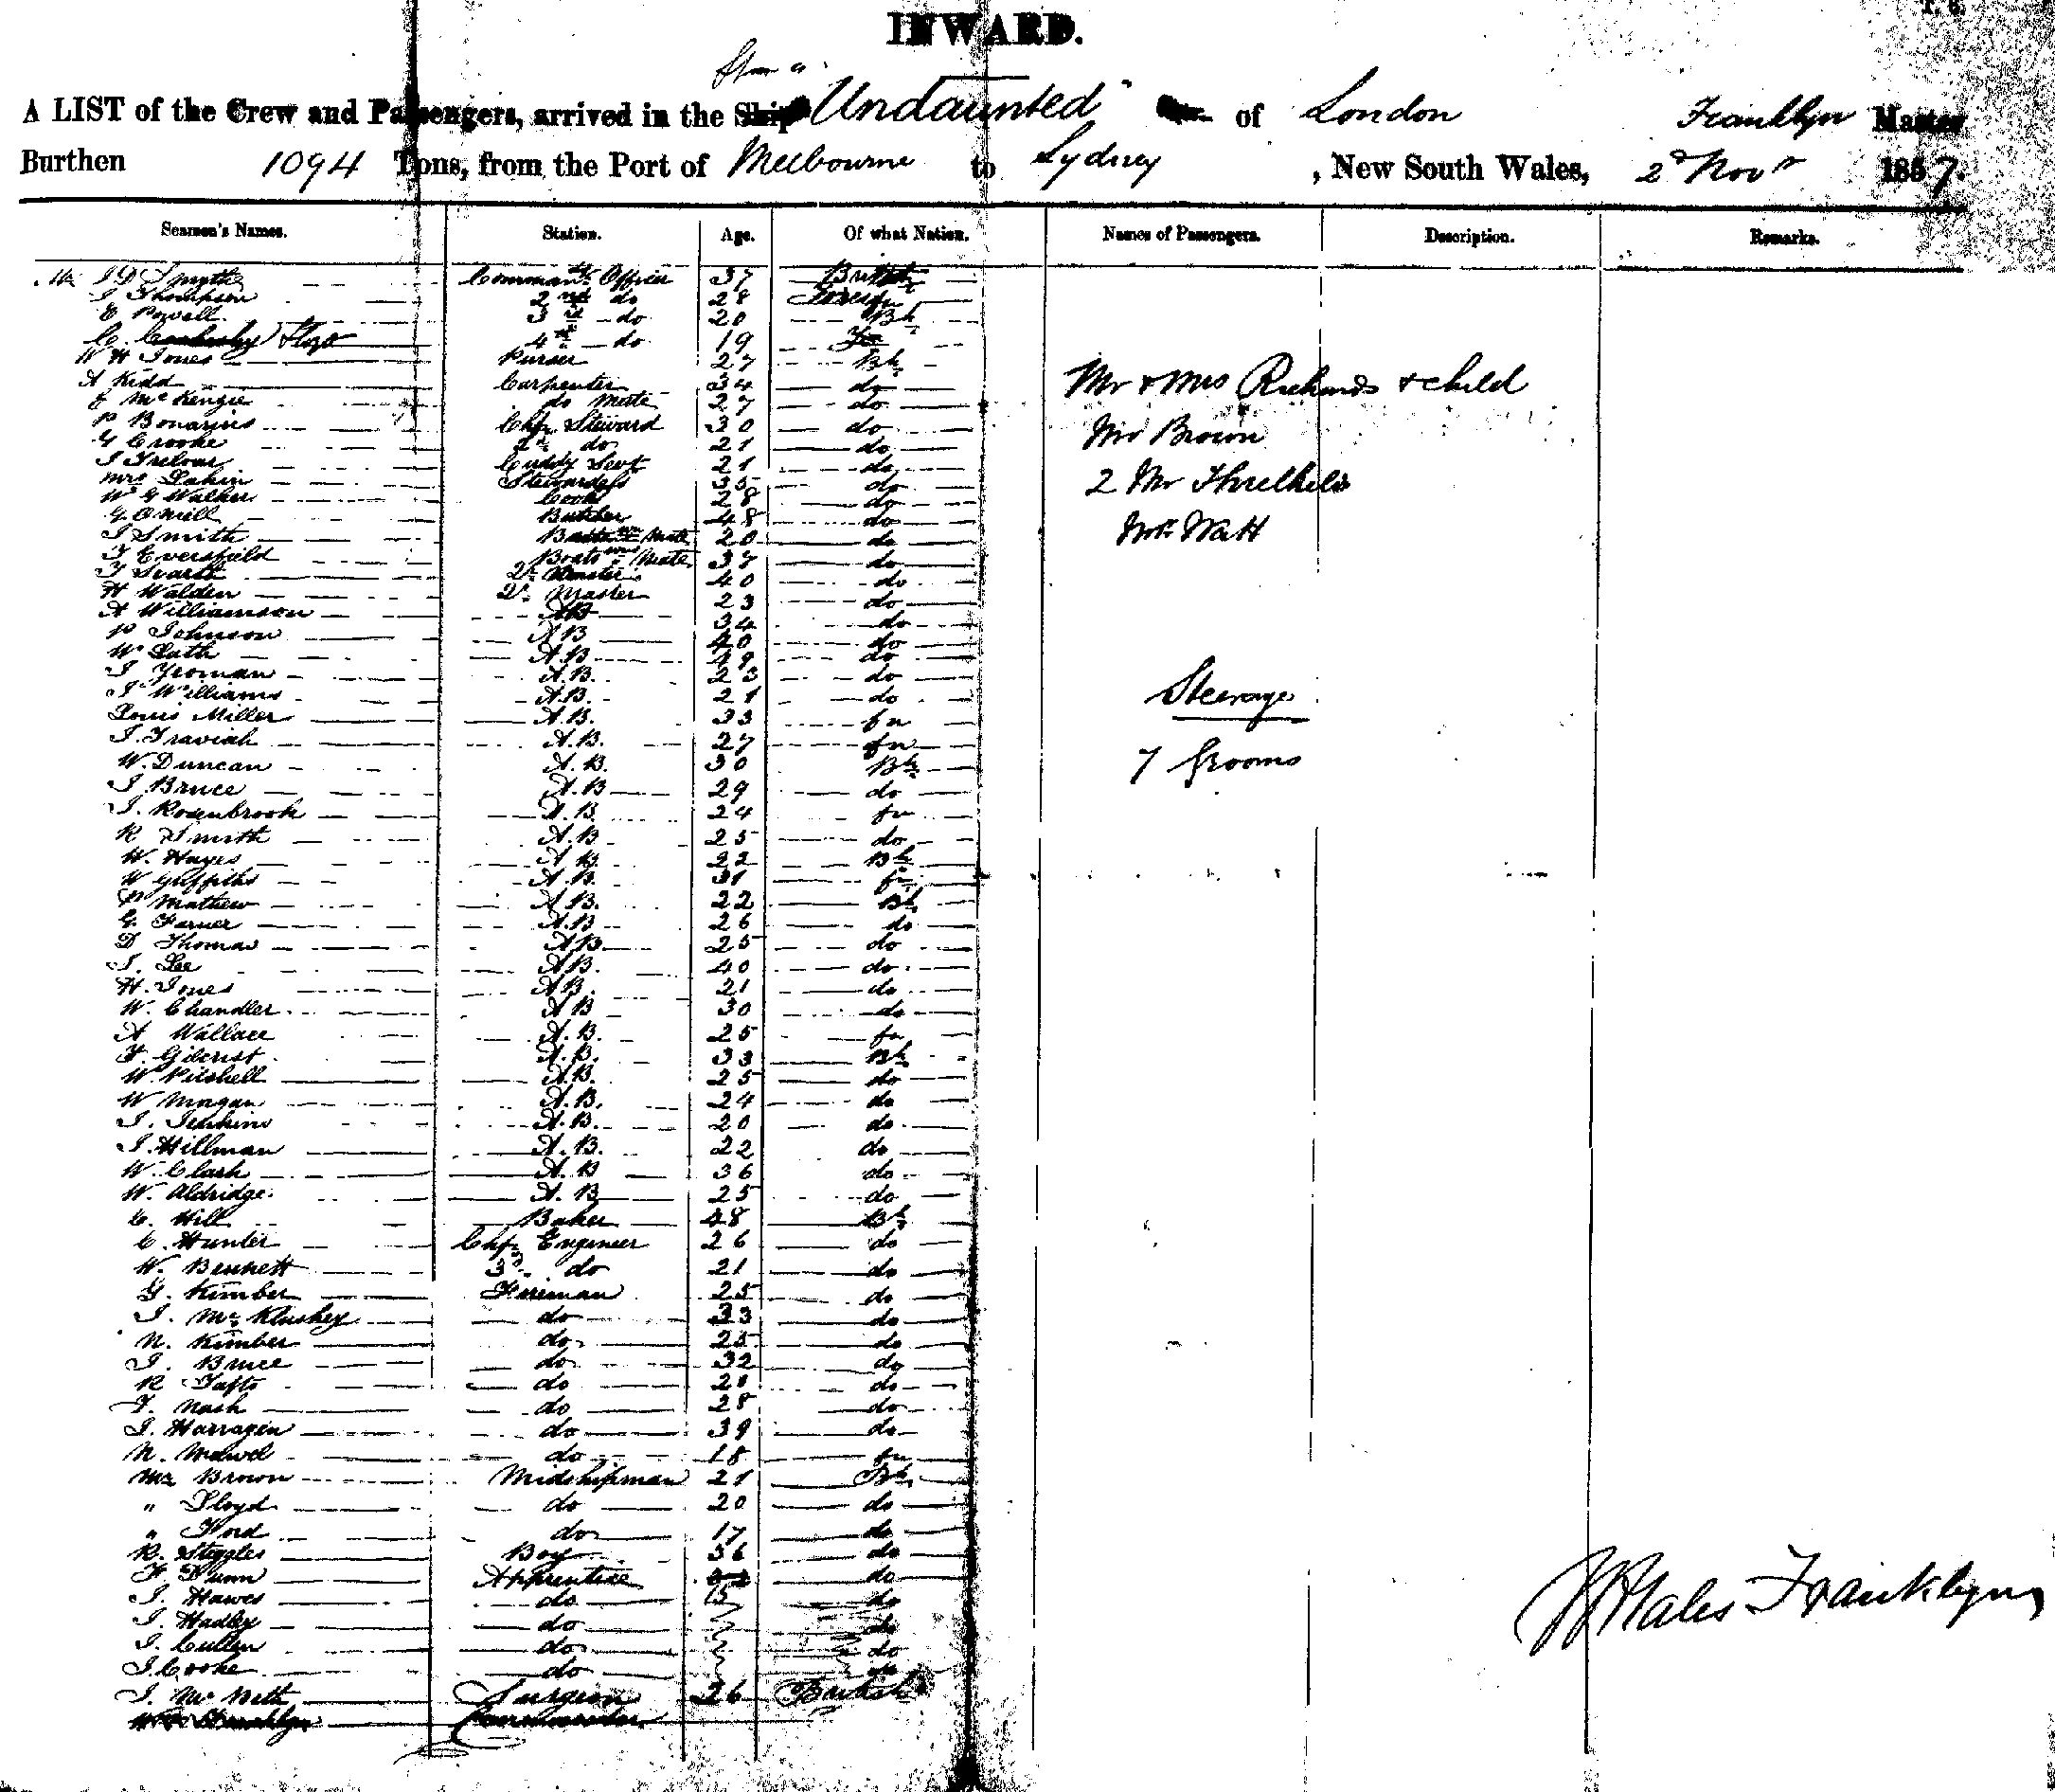 INWARD.
A LIST of the Crew and Passengers, arrived in the Ship "Undaunted" of London Franklyn Master
Burthen 1094 Tons, from the Port of Melbourne to Sydney, New South Wales, 2d Novr 1857.
Seamen's Names. Station. Age. Of what Nation. Names of Passengers. Description. Remarks.
Mr J D Smyth Officer 37 British
J Thompson 2nd do 28 Foreign
E Powell 3rd do 20 Bh
4th do 19
W H Jones Purser 27 Bh
A Kidd Carpenter 34 do
Mc Kenzie do Mate 27 do
P Bonarius Chf Steward 30 do
G Crooke 2d do 21 do
J Treloar Cuddy Servt 21 do
Mrs Lakin Stewardess 35 do
W G Walker Cook 28 do
G. O'Neill Butcher 48 do
J Smith Mate 20 do
T Eversfield Boatswns Mate 37 do
Qr Master 40 do
H Walden Qr Master 23 do
A Williamson AB 34 do
P Johnson AB 40 do
W AB do
J Yeoman A.B. 23 do
J Williams A.B. 21 do
Louis Miller A.B. 33 fn
J. Traviah A.B. 27 fn
W. Duncan A.B. 30 Bh
J. Bruce A.B 29 do
J. Rosenbrook A.B. 24 fn
R Smith A.B 25 do
W. Hayes A B. 22 Bh
W Griffiths A B. 31 fn
P Mathew A B. 22 Bh
G. A.B 26 do
D Thomas AB 25 do
J. Lee AB. 40 do
H. Jones AB. 21 do
W. Chandler A B 30 do
A Wallace A.B. 25 fn
F. Gilcrist A.B. 33 Bh
W. Pitshell A.B. 25 do
W Morgan A.B. 24 do
J. Jenkins A.B. 20 do
J. Hillman A.B. 22 do
W. Clark A. B 36 do
W. Aldridge A. B 25 do
C. Hill Baker 48 Bh
C. Hunter Chf Engineer 26 do
W. Bennett 3rd do 21 do
G. Kimber Fireman 25 do
J. Mc Kluskey do 33 do
N. Kimber do 25 do
J. Bruce do 32 do
R Tafts do 21 do
F. Nash do 28 do
J. Harragin do 39 do
N. do 18 fn
Mr Brown Midshipman 21 Bh
" Lloyd do 20 do
" Ford do 17 do
R. Steggles Boy 36 do
F. Dunn Apprentice do
J. Hawes do 15 do
J. Hadley do do
J. Cullen do do
J. Cooke do do
J. Mc Surgeon 26 British
Franklyn Commander
Mr & Mrs Richards & child
Mrs Brown
2 Mr Threlkeld
Watt
Steerage
7 Grooms
Hales Franklyn